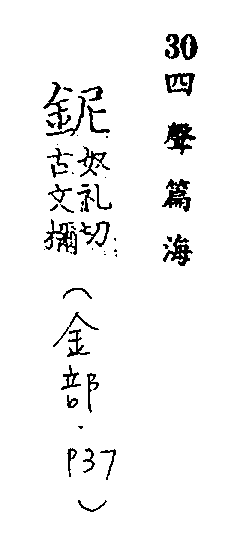 30四聲篇海
鈮
奴礼切
古文檷
(金部.P37)